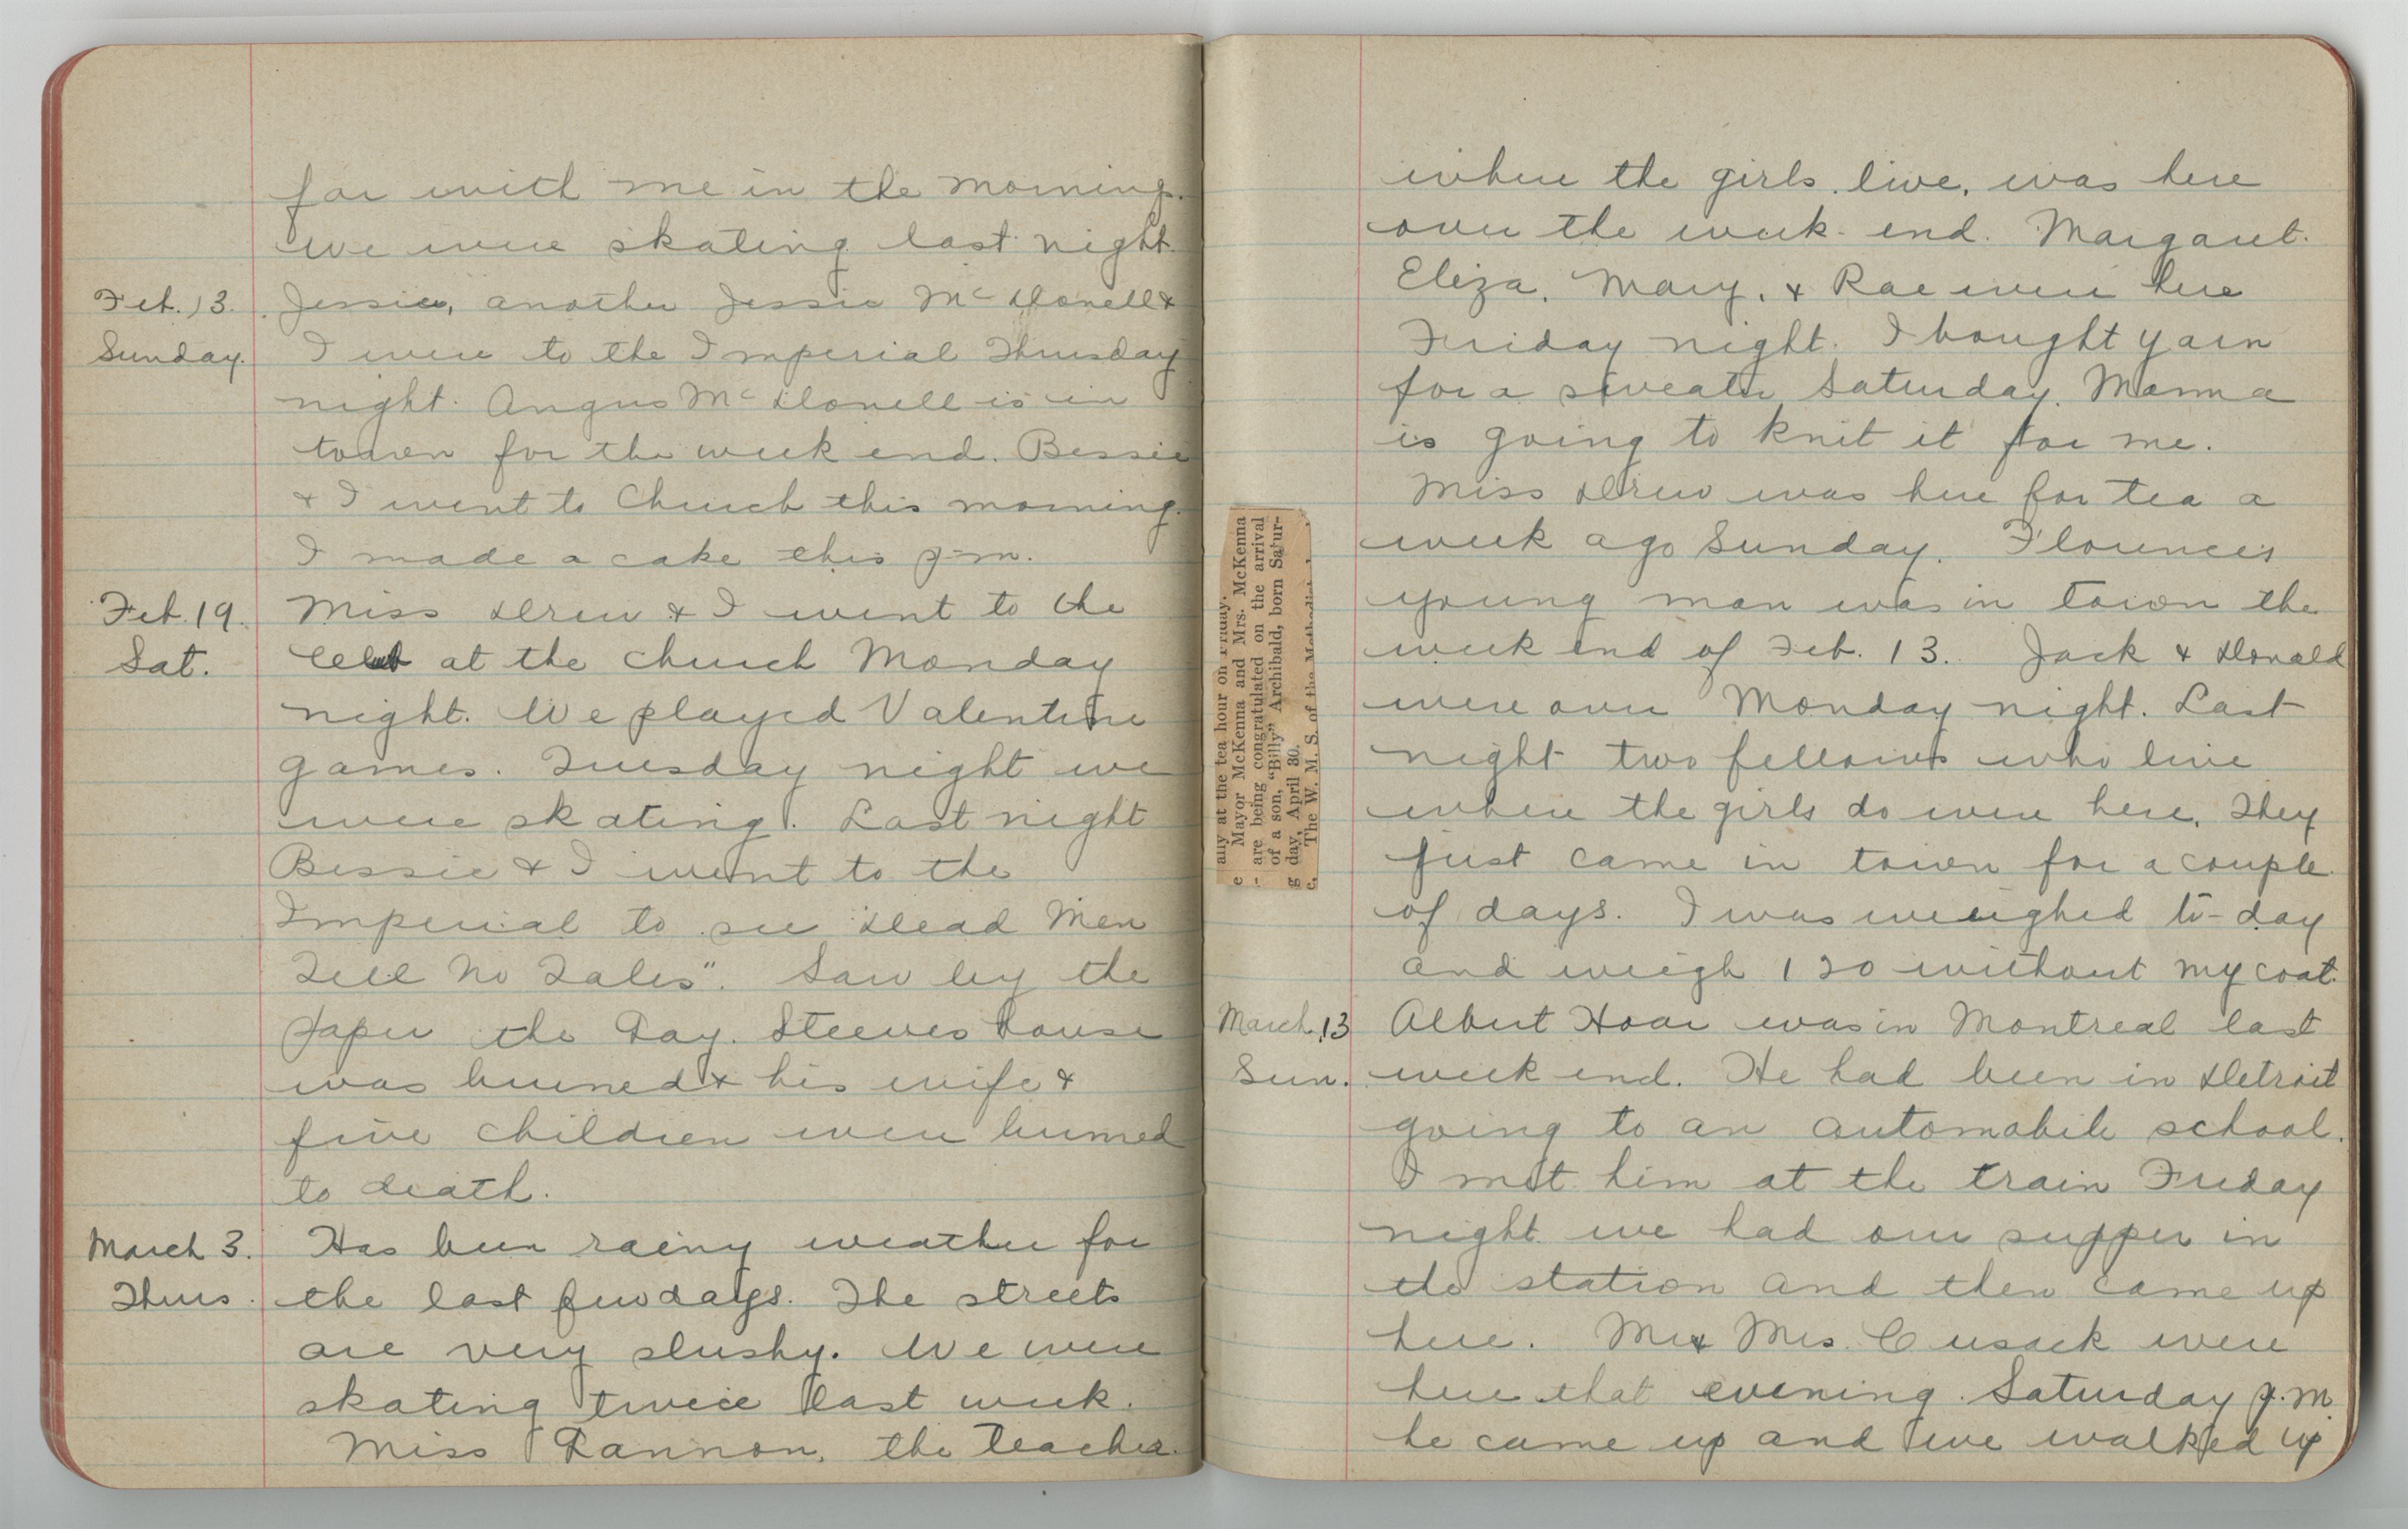 far with me in the morning.
We were skating last night.
Feb. 13. Jessie, another Jessie McDonell &
Sunday. I were to the Imperial Thursday
night. Angus McDonell is in
town for the week end. Bessie
& I went to Church this morning.
I made a cake this p.m.
Feb. 19. Miss Drew & I went to the
Sat. at the church Monday
night. We played Valentine
games. Tuesday night we
were skating. Last night
Bessie & I went to the
Imperial to see "Dead Men
Tell No Tales". Saw by the
paper the Day. Steeves house
was burned & his wife &
five children were burned
to death.
March 3. Has been rainy weather for
Thurs. the last few days. The streets
are very slushy. We were
skating twice last week.
Miss Rannon, the teacher
where the girls live, was here
over the week-end. Margaret.
Eliza, Mary, & Rae were here
Friday night. I bought yarn
for a sweater Saturday. Mamma
is going to knit it for me.
Miss Drew was here for tea a
week ago Sunday. Florences
young man was in town the
week end of Feb. 13. Jack & Donald
were over Monday night. Last
night two fellows who live
where the girls do were here. They
just came in town for a couple
of days. I was weighed to-day
and weigh 120 without my coat.
March 13 Albert Hoar was in Montreal last
Sun. week end. He had been in Detroit
going to an automobile school.
I met him at the train Friday
night we had our supper in
the station and then came up
here. Mr & Mrs. Cusack were
here that evening. Saturday p.m.
he came up and we walked up
ally at the tea hour on Friday.
e Mayor McKenna and Mrs. McKenna
- are being congratulated on the arrival
of a son, "Billy" Archibald, born Satur-
g day, April 30.
c, The W. M. S. of the Methodist